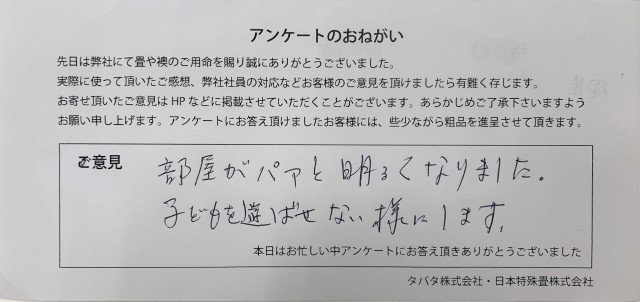 アンケートのおねがい
先日は弊社にて畳や襖のご用命を賜り誠にありがとうございました。
実際に使って頂いたご感想、弊社社員の対応などお客様のご意見を頂けましたら有難く存じます。
お寄せ頂いたご意見はHPなどに掲載させていただくことがございます。あらかじめご了承下さいますよう
お願い申し上げます。アンケートにお答え頂けましたお客様には、些少ながら粗品を進呈させて頂きます。
ご意見
部屋がパァと明るくなりました。
子どもを遊ばせない様にします。
本日はお忙しい中アンケートにお答え頂きありがとうございました
タバタ株式会社・日本特殊畳株式会社